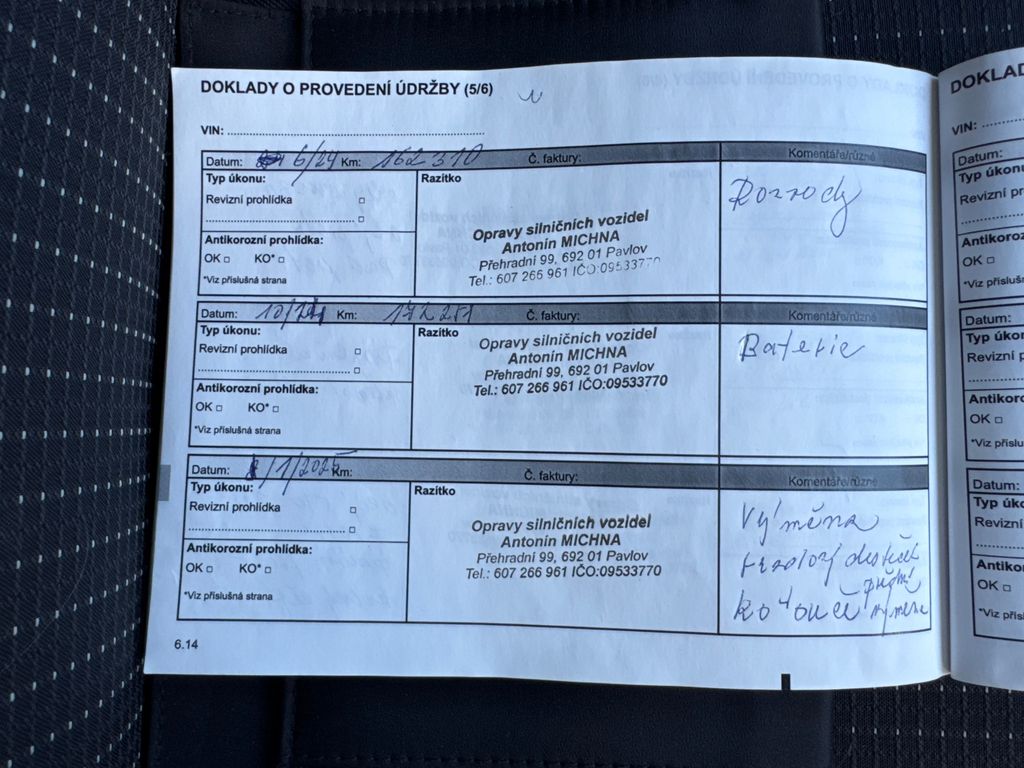 DOKLADY O PROVEDENÍ ÚDRŽBY (5/6)
VIN:
Datum: 6/24 Km: 162 310 Č. faktury: Komentáře/různé
Typ úkonu:
Revizní prohlídka
Antikorozní prohlídka:
OK KO*
*Viz příslušná strana
Razítko
Opravy silničních vozidel
Antonín MICHNA
Přehradní 99, 692 01 Pavlov
Tel.: 607 266 961 IČO:09533770
Rozvody
Datum: 10/24 Km: 172 251 Č. faktury: Komentáře/různé
Typ úkonu:
Revizní prohlídka
Antikorozní prohlídka:
OK KO*
*Viz příslušná strana
Razítko
Opravy silničních vozidel
Antonín MICHNA
Přehradní 99, 692 01 Pavlov
Tel.: 607 266 961 IČO:09533770
Baterie
Datum: /1/2025 Km: Č. faktury: Komentáře/různé
Typ úkonu:
Revizní prohlídka
Antikorozní prohlídka:
OK KO*
*Viz příslušná strana
Razítko
Opravy silničních vozidel
Antonín MICHNA
Přehradní 99, 692 01 Pavlov
Tel.: 607 266 961 IČO:09533770
Výměna
destiček
kotouč přední
6.14
DOKLAD
VIN:
Datum:
Typ úkonu
Revizní p
Antikoroz
OK
*Viz přísl
Datum:
Typ úko
Revizní p
Antikoro
OK
*Viz přís
Datum:
Typ úko
Revizní
Antiko
OK
*Viz přís